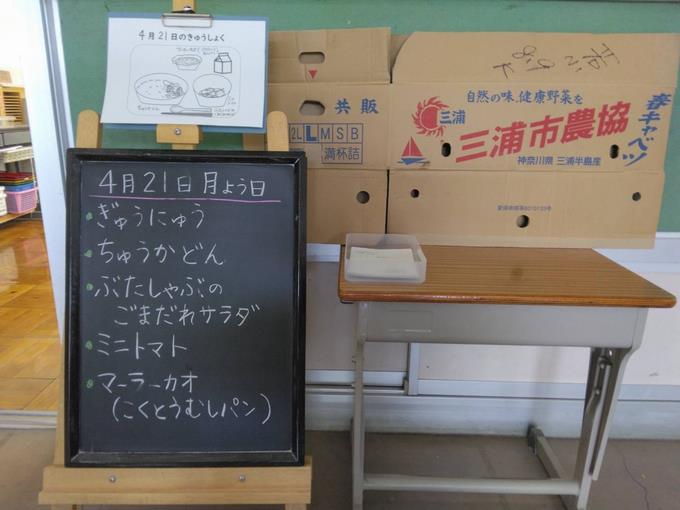 4月21日のきゅうしょく
4月21日 月よう日
ぎゅうにゅう
ちゅうかどん
ぶたしゃぶの
ごまだれサラダ
ミニトマト
マーラーカオ
(こくとうむしパン)
共販
2L L M S B
満杯詰
自然の味、健康野菜を
三浦
三浦市農協
神奈川県 三浦半島産
春キャベツ